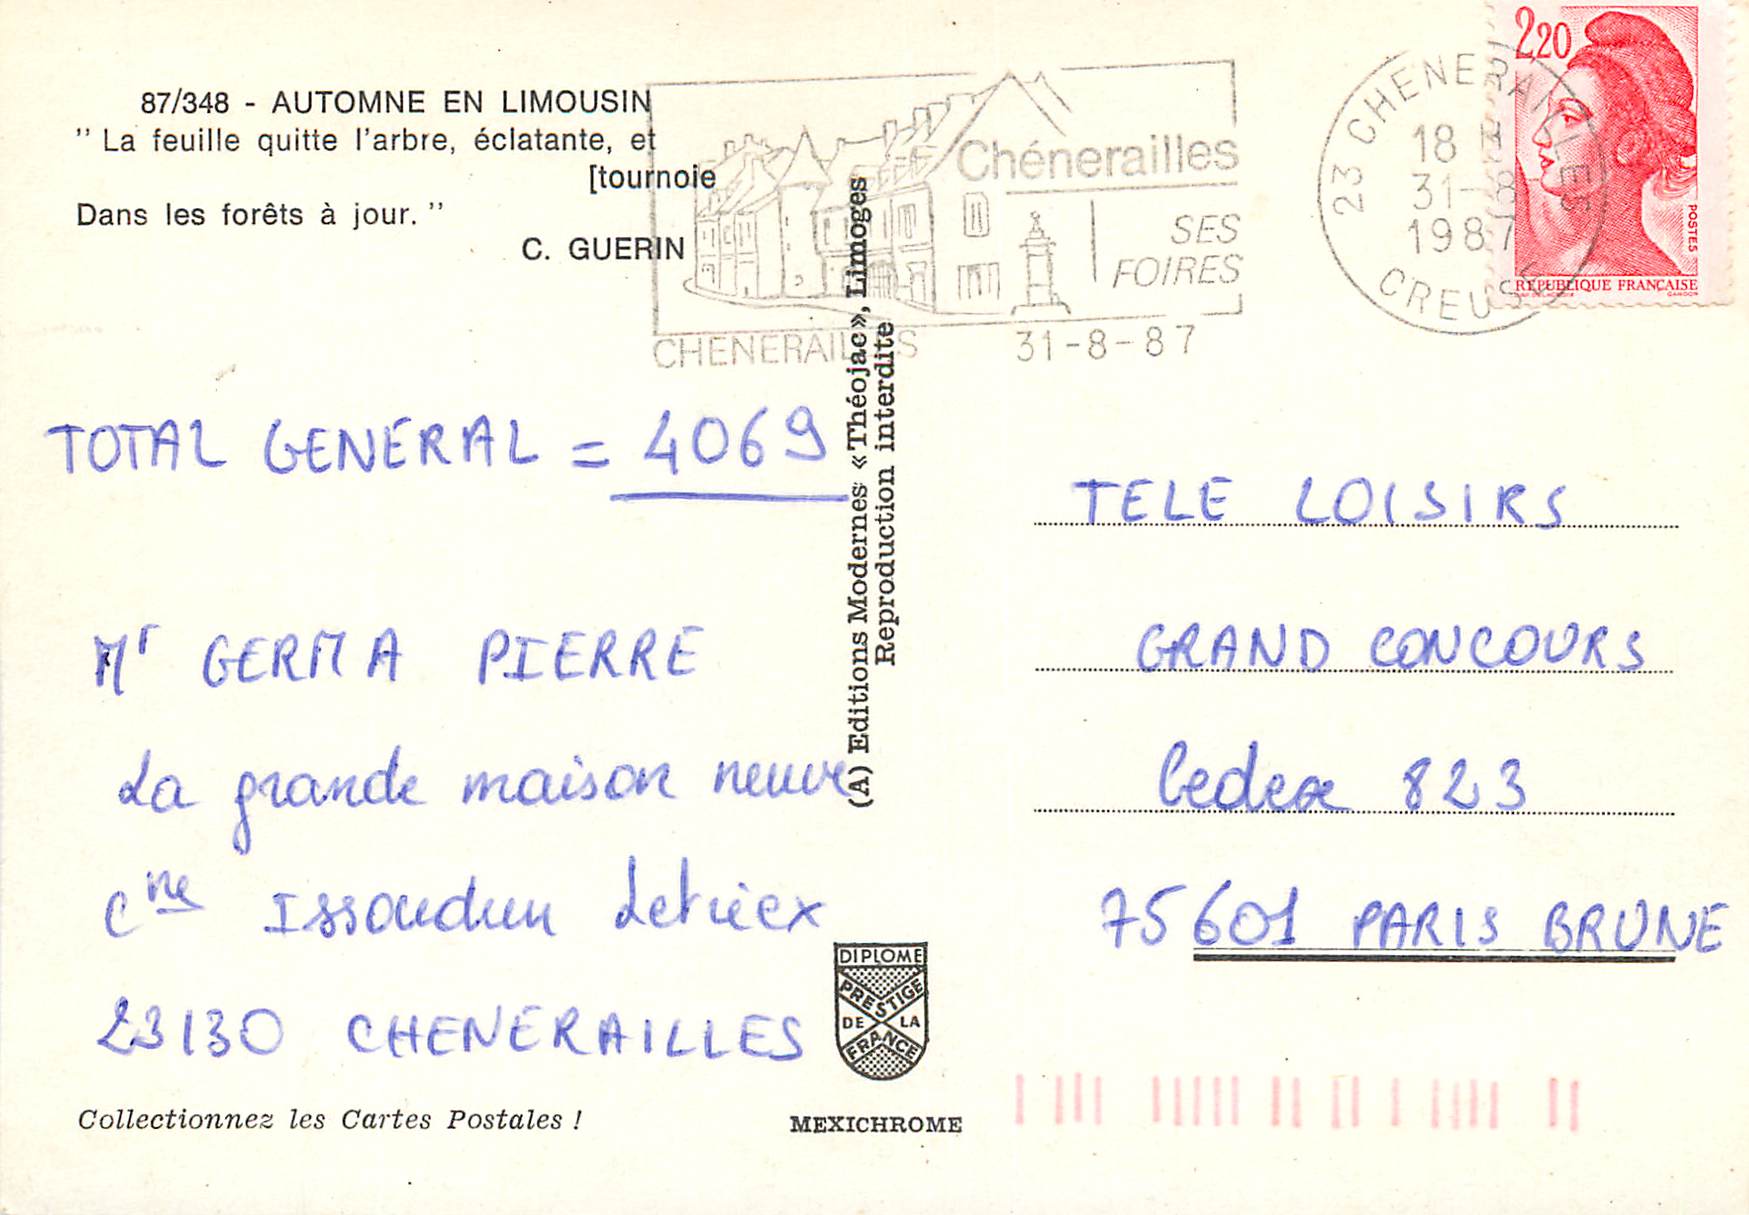 87/348 - AUTOMNE EN LIMOUSIN
" La feuille quitte l'arbre, éclatante, et
[tournoie
Dans les forêts à jour. "
C. GUERIN
Chénerailles
SES
FOIRES
CHENERAILLES 31-8-87
23 CHENERAILLES
18 H
31-8-
1987
CREUSE
2,20
POSTES
REPUBLIQUE FRANÇAISE
GANDON
TOTAL GENERAL = 4069
Mr GERMA PIERRE
La grande maison neuve
Cne Issoudun Letrieix
23130 CHENERAILLES
(A) Editions Modernes «Théojac», Limoges
Reproduction interdite
TELE LOISIRS
GRAND CONCOURS
Cedex 823
75601 PARIS BRUNE
DIPLOME
PRESTIGE
DE LA
FRANCE
Collectionnez les Cartes Postales !
MEXICHROME